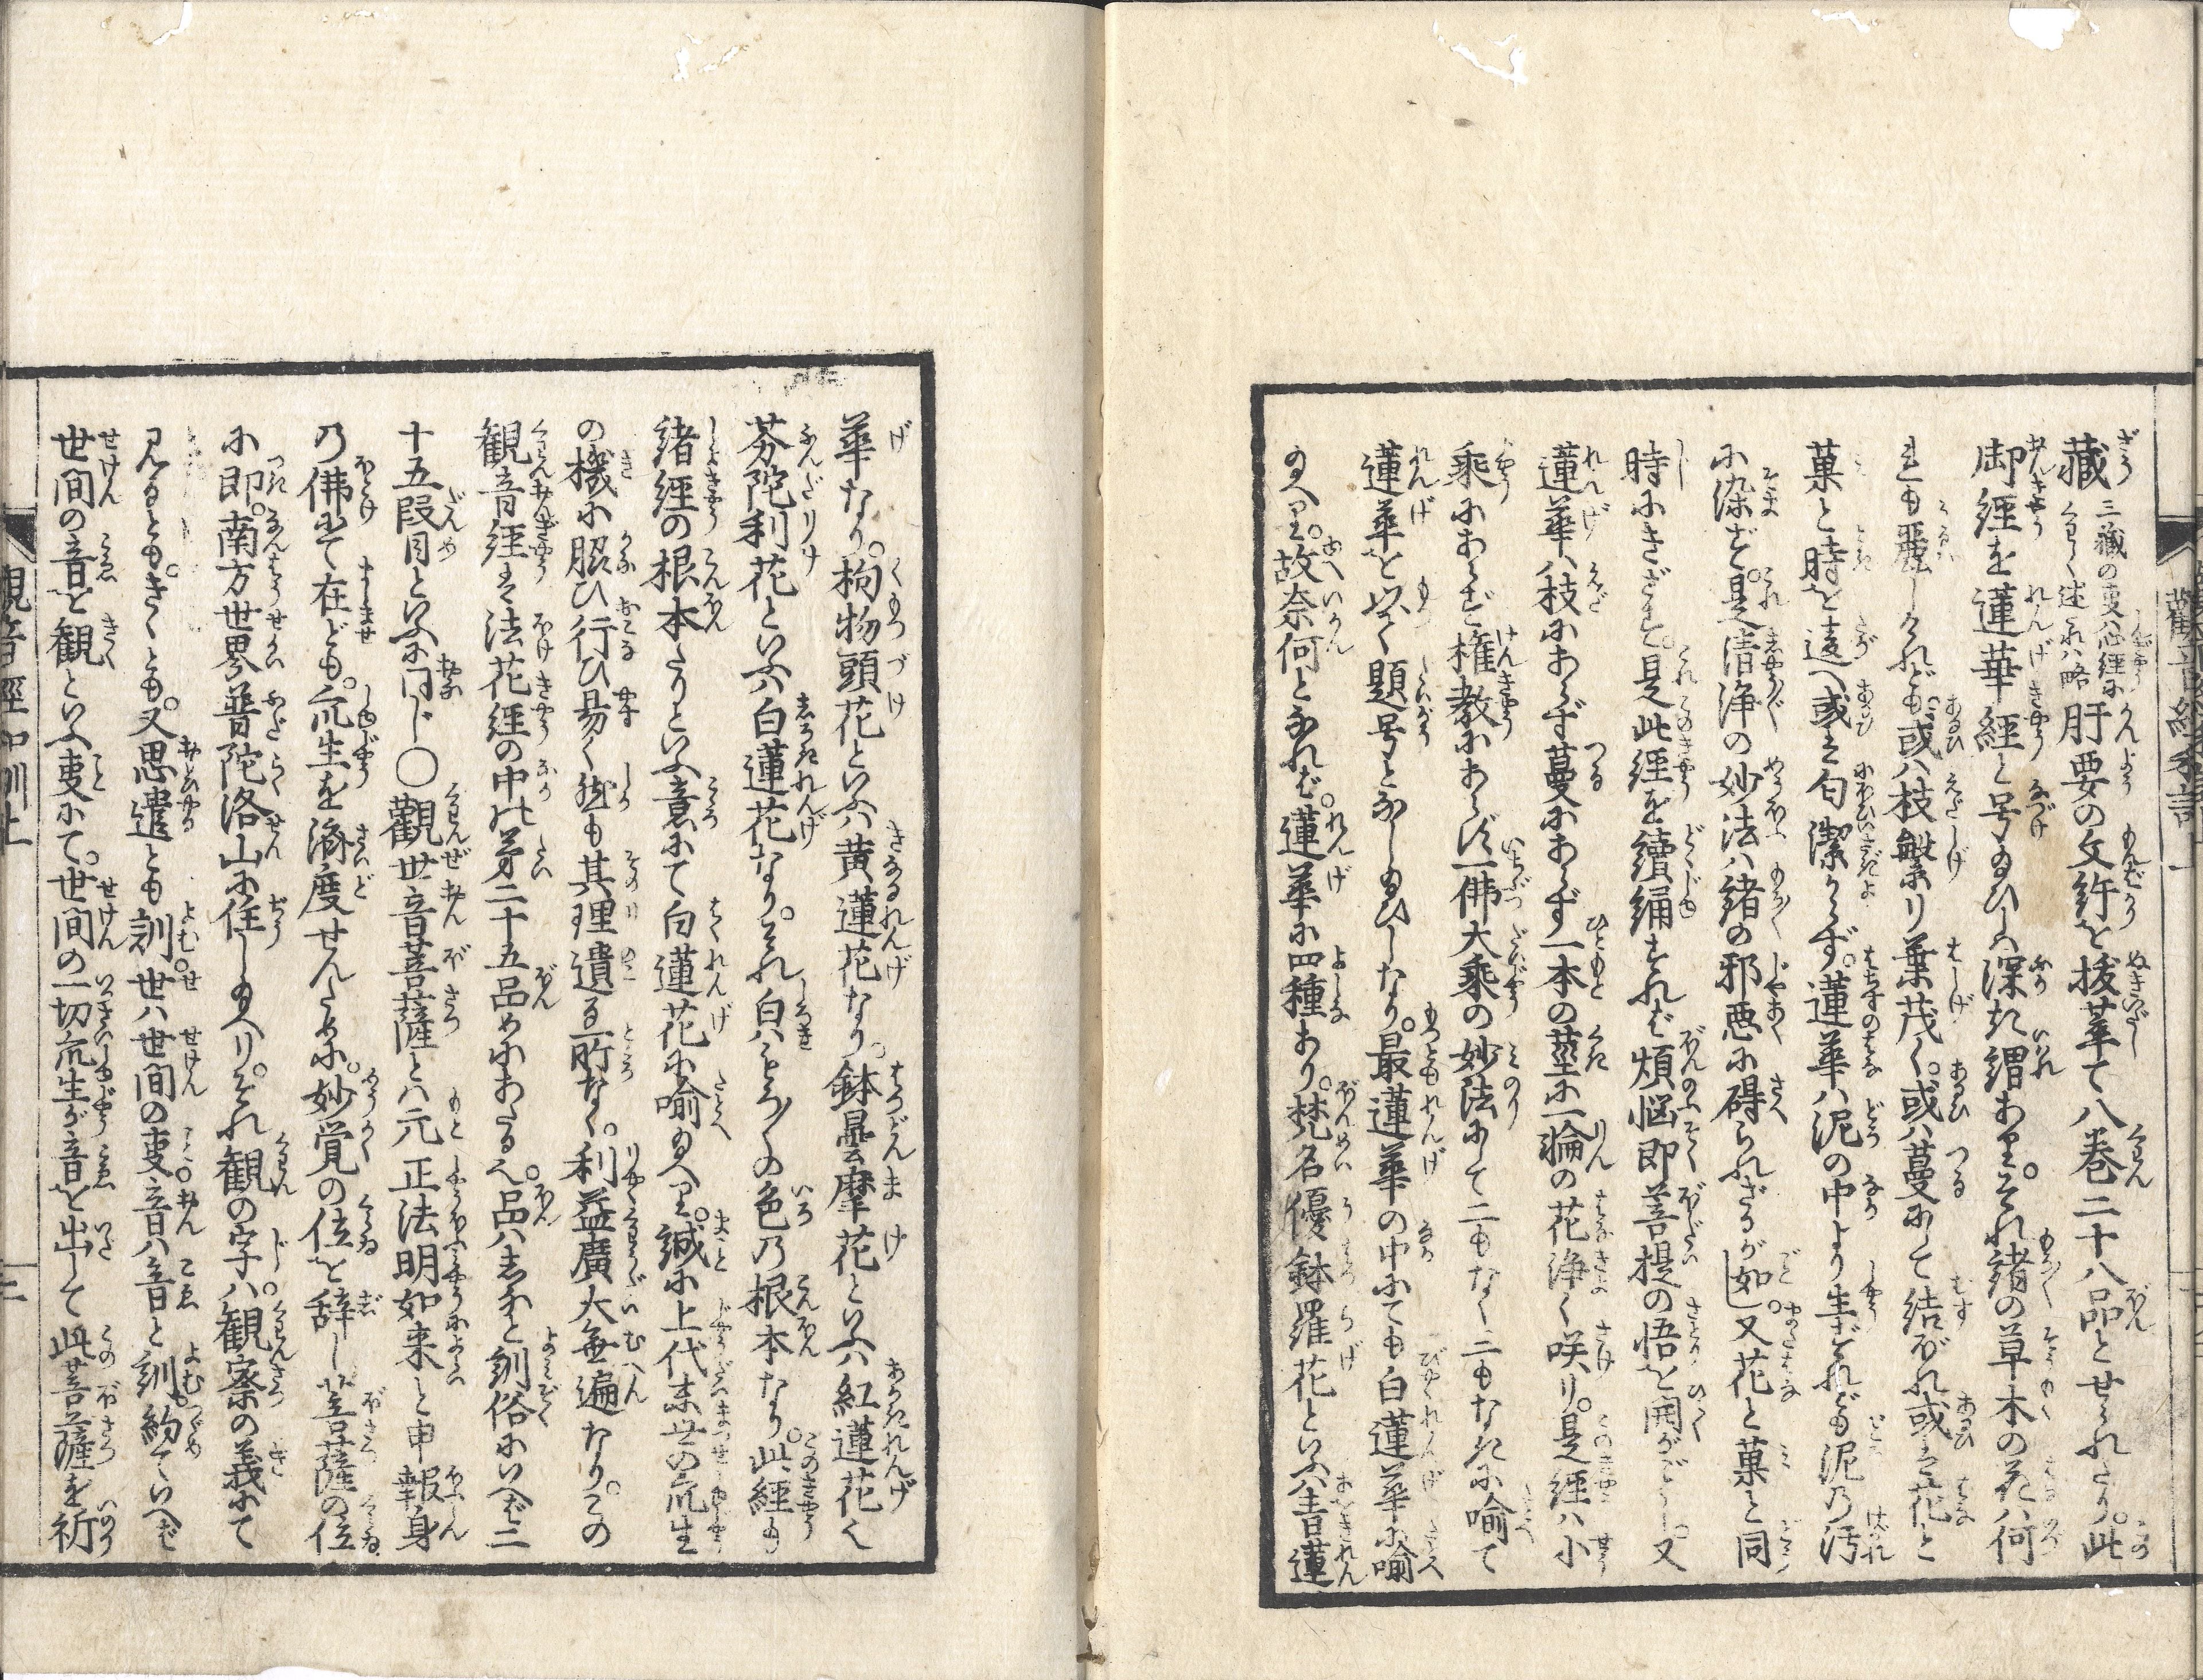 藏三藏の事ハ心経に
くはしく述れハ略肝要の文許を抜萃て八巻二十八品とせられたり。此
御経を蓮華経と号給ひしハ深き謂あり。それ諸の草木の花ハ何
れも麗しけれども。或ハ枝繁り葉茂く。或ハ蔓にて結ばれ或は花と
菓と時を違へ或は匂潔からず。蓮華ハ泥の中より生ずれども泥乃汚
に染ず。是清浄の妙法ハ諸の邪悪に碍られざるが如し。又花と菓と同
時にきざす。是此経を續誦すれば煩悩即菩提の悟を開がごとし。又
蓮華ハ枝にあらず蔓にあらず一本の茎に一輪の花浄く咲り。是経ハ小
乗にあらず権教にあらず一佛大乗の妙法にて二もなく三もなきに喩て
蓮華を以て題号となし給ひしなり。最蓮華の中にても白蓮華に喩
給へり。故奈何となれば。蓮華に四種あり。梵名優鉢羅花といふハ青蓮
華なり。拘物頭花といふハ黄蓮花なり。鉢曇摩花といふハ紅蓮花也
芬陀利花といふハ白蓮花なり。それ白ハもろ〳〵の色乃根本なり。此経も
諸経の根本たりといふ意にて白蓮花に喩給へり。誠に上代末世の衆生
の機に脗ひ行ひ易く然も其理遺る所なく。利益廣大無遍なり。この
観音経は法花経の中の第二十五品めにあたる也。品ハしなと訓俗にいへば二
十五段目といふに同じ〇觀世音菩薩とハ元正法明如来と申報身
乃佛にて在ども。衆生を済度せんために。妙覚の位を辞し菩薩の位
に即。南方世界普陀洛山に住し給へり。それ観の字ハ観察の義にて
見るとも。きくとも。又思遣とも訓世ハ世間の事音ハ音と訓。約ていへば
世間の音を観といふ事にて。世間の一切衆生が音を出して此菩薩を祈
観音經和訓上
三